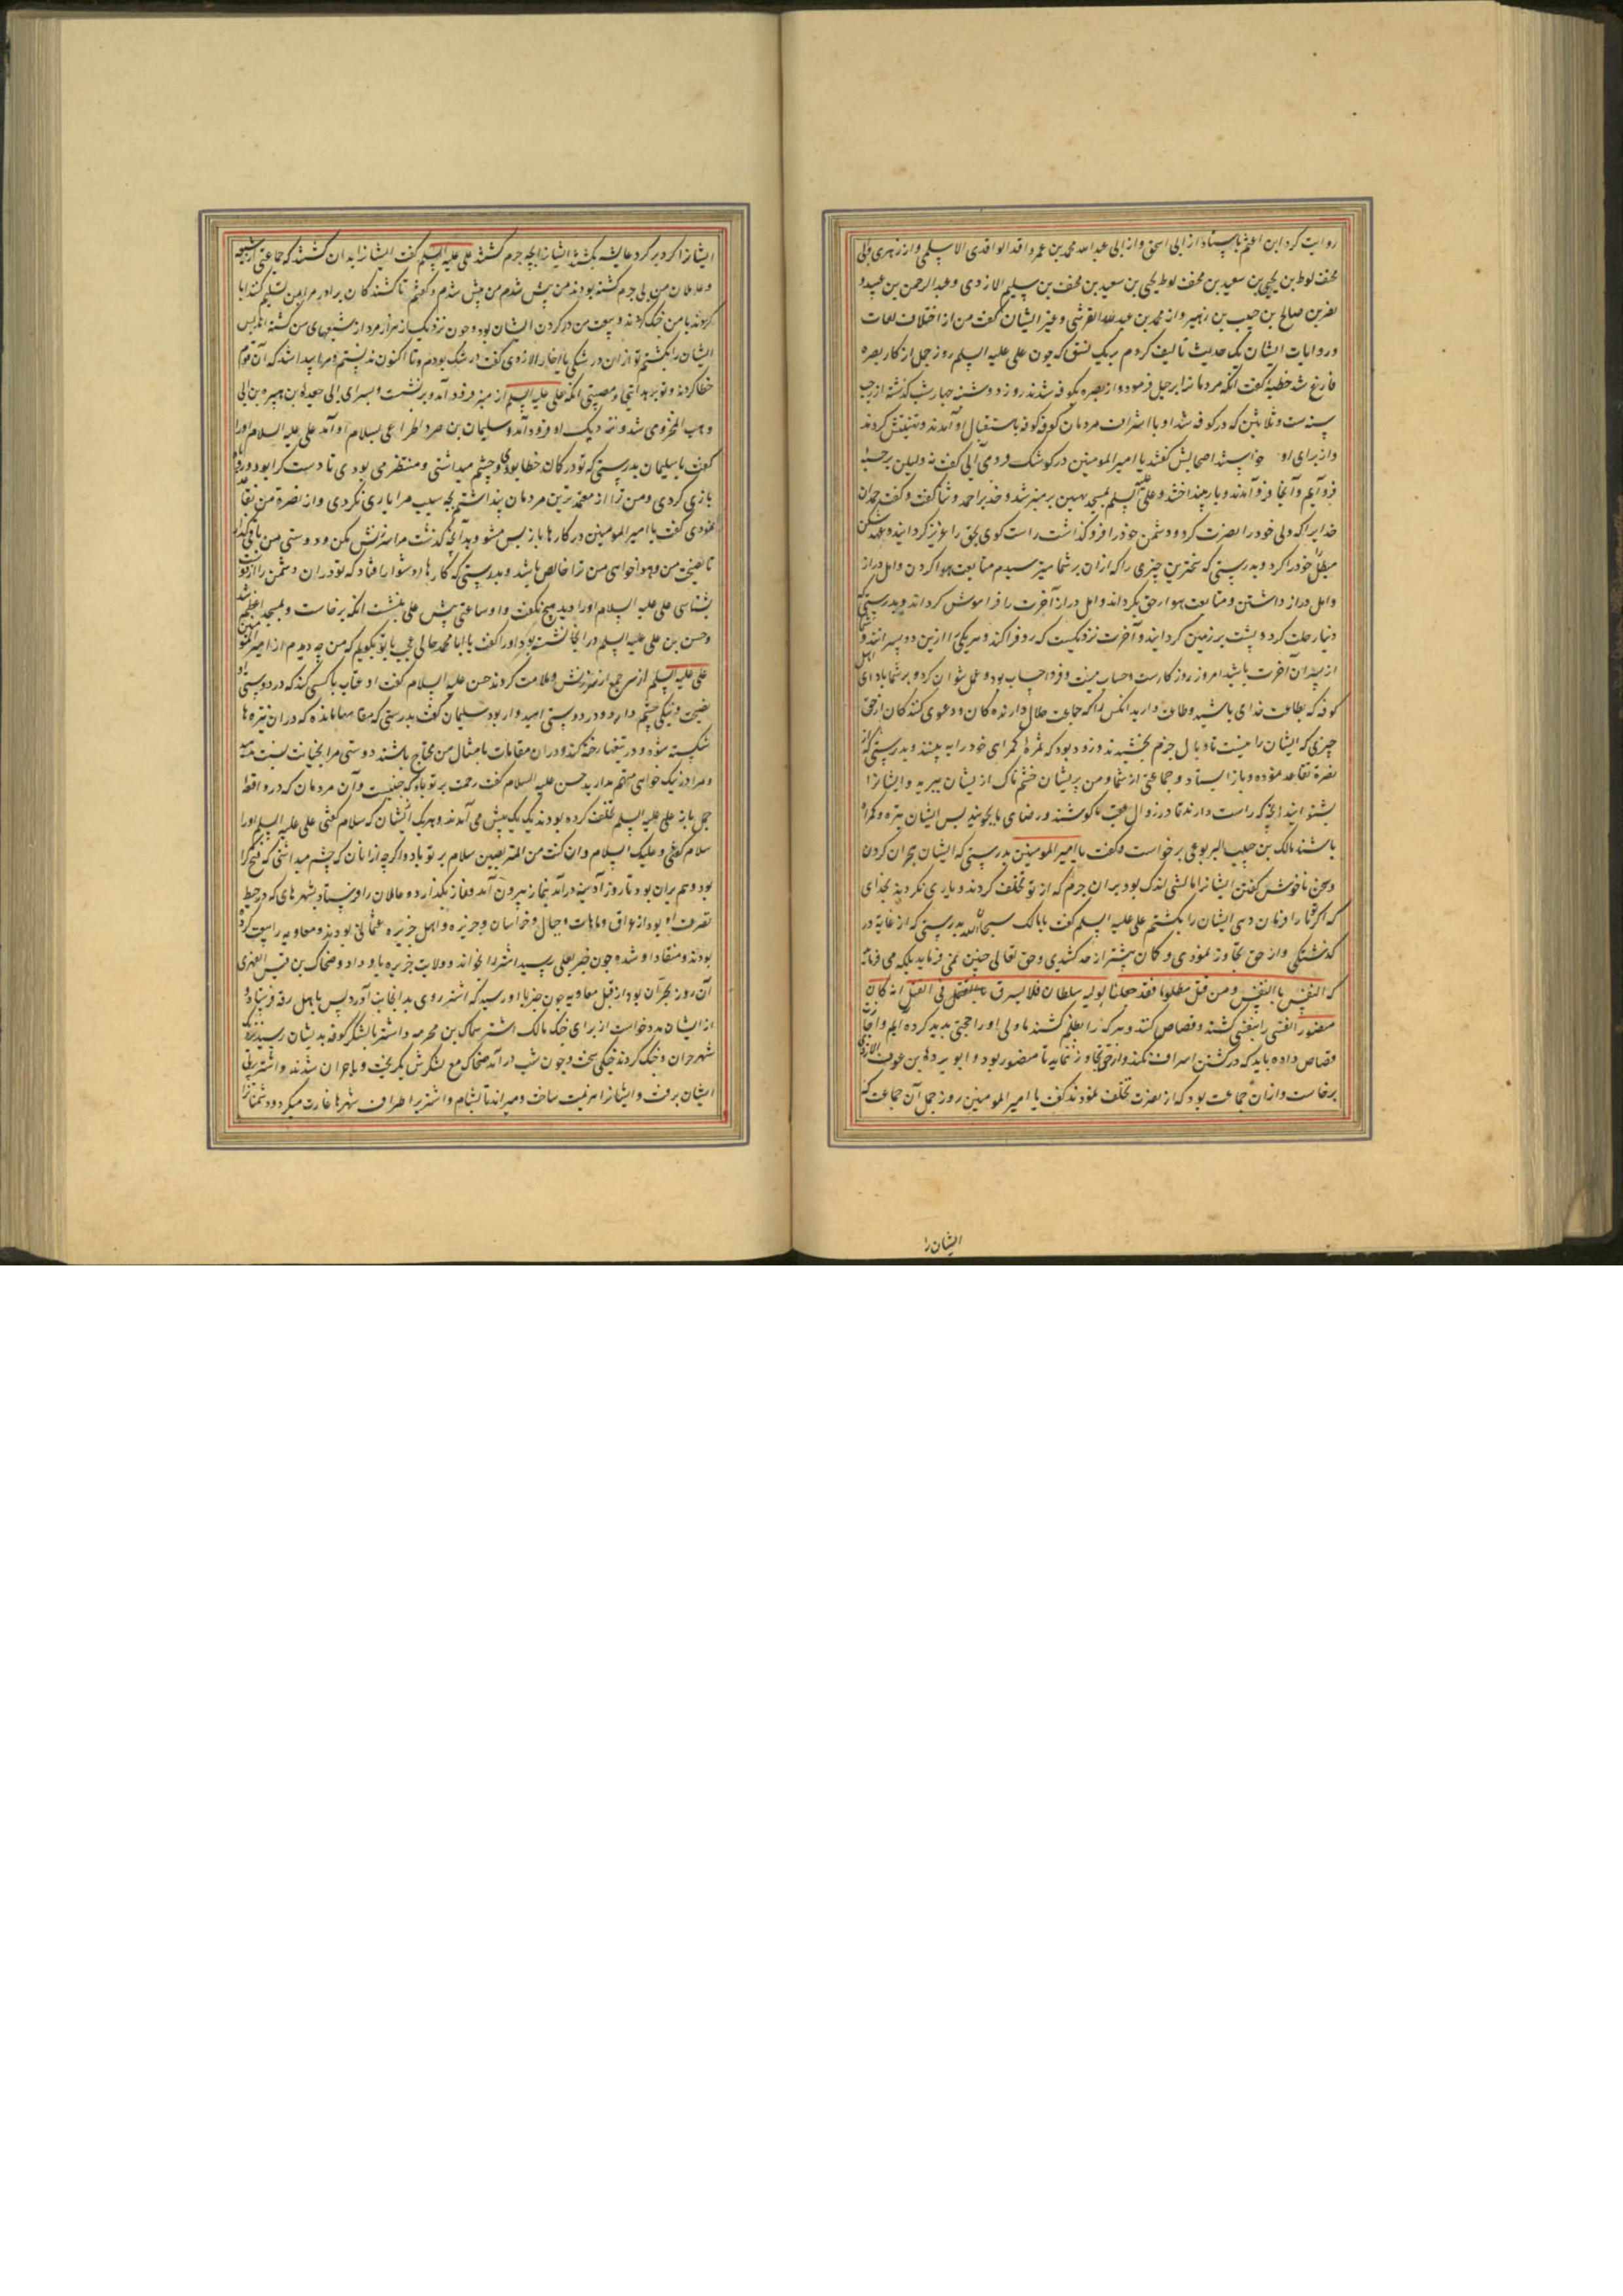 روایت کرد ابن اعثم باسناد از ابی اسحق و از ابی عبدالله محمد بن عمر واقد الواقدی الاسلمی و از زهری و ابی
مخنف لوط بن یحیی بن سعید بن مخنف لوط یحیی بن سعید بن مخنف بن سلیم الازدی و عبدالرحمن بن عبید و
نضر بن صالح بن حبیب بن زهیر و از محمد بن عبدالله القرشی و غیر ایشان گفت من از اختلاف لغات
و روایات ایشان یک حدیث تالیف کردم بر یک نسق که چون علی علیه السلم روز جمل از کار بصره
فارغ شد خطبه گفت آنکه مردمانرا بر حیل فرمود و از بصره بکوفه شدند روز دوشنبه چهار شب گذشته از رجب
سنه ست و ثلاثین که در کوفه شد او با اشراف مردمان کوفه کوفه باستقبال او آمدند و تهنیتش کردند
و از برای او خواستند اصحابش گفتند یا امیر المومنین در کوشک فرود می آیی گفت نه ولیکن برحبه
فرو آیم و آنجا فرو آمدند و بار بینداختند و علی علیه السلم بمسجد مهین بر منبر شد و خدیرا حمد و ثنا گفت و گفت حمد آن
خدایرا که ولی خود را نصرت کرد و دشمن خود را فرو گذاشت راست کوی بحق را عزیز گردانید و عهد شکن
مبطل را خودرا کرد و بدرستی که سخترین چیزی را که از آن بر شما میترسیدم متابعت هوا کردن و امل دراز
و امل دراز داشتن و متابعت هوا از حق بگرداند و امل دراز آخرت را فراموش گرداند و بدرستی که
دنیا رحلت کرد و پشت بر زمین گردانید و آخرت نزدیکست که رو فرا کند و هر یکی را ازین دو پسرانند و شما
از پسران آخرت باشید امروز روز کارست و حساب نیست و فردا حساب بود و عمل نتوان کرد و بر شما باد ای اهل
کوفه که بطاعت خدای باشید و طاعت دارید آنکس را که
چیزی که ایشان را نیست تا وبال جرم بچشیدند و زود بود که ثمرۀ گمراهی خود را به بینند و بدرستی که از
نصرة تقاعد نموده و باز ایستاد و جماعتی از شما و من بریشان خشم ناک از ایشان ببرید و ایشانرا
بشنوانید آنچه که راست دارند تا در زوال عتب ما کوشند و رضای ما بجویند پس ایشان
باشند مالک بن حبیب الیربوعی برخواست و گفت یا امیر المومنین بدرستی که ایشان هجران کردن
و سخن ناخوش گفتن ایشانرا مالشی اندک بود بر آن جرم که از تو تخلف کردند و یاری نکردند بخدای
که اگر ما را فرمان دهی ایشان را بکشیم علی علیه السلم گفت یا مالک سبحان الله بدرستی که از غایة در
گذشتگی و از حق تجاوز نمودی و گمان بیشتر از حد کشیدی و حق تعالی چنین نمی فرماید بلکه می فرماید
که النفس بالنفس و من قتل مظلوما فقد جعلنا لولیه سلطان فلا یسرف فی القتل انه کان
منصورا نفسی را بنفسی کشند و قصاص کنند و هر که را بظلم کشند ما ولی او را حجتی پدید کرده ایم و اجازت
قصاص داده باید که در کشتن اسراف نکند و از حق تجاوز ننماید تا منصور بود و ابو برده بن عوف الازدی
برخاست و از آن جماعت بود که از نصرت تخلف نمودند گفت یا امیر المومنین روز جمل آن جماعت که
ایشان را
ایشانرا گرد بر گرد عایشه بکشتند ایشانرا بچه جرم کشتند علی علیه السلم گفت ایشانرا بدان کشتند که جماعتی از شیعه
و عاملان من بی جرم کشته بودند من پیش شدم من پیش شدم و گفتم تا کشندگان برادرم را بمن تسلیم کنند ابا
کردند با من جنگ کردند و بیعت من در گردن ایشان بود و چون نزدیک از هزار مرد از شیعهای من کشته اند پس
ایشان را بکشتم تو از آن در شکی یا اخا الازدی گفت در شک بودم و تا اکنون ندانستم و مرا پیدا شد که آن قوم
خطا کردند و تو بر هدایتی و مصیبتی آنکه علی علیه السلم از منبر فرود آمد و برنشست و بسرای ابی جعده بن هبیره بن ابی
وهب المخزومی شد و نزدیک او فرود آمد و سلیمان بن صرد الخزاعی بسلام او آمد علی علیه السلام او را
گفت یا سلیمان بدرستی که تو در گمان خطا بودی و چشم میداشتی و منتظر می بودی تا دست کرا بود و روباه
بازی کردی و من ترا از معتمدترین مردمان پنداشتم بچه سبب مرا یاری نکردی و از نصرة من تقاعد
نمودی گفت یا امیر المومنین در کارها باز پس مشو و بدانچه گذشت مرا سرزنش مکن و دوستی من باقی گذار
تا نصیحت من و هواخواهی من ترا خالص باشد و بدرستی که کارها دشوار افتاد که تو در آن دشمن را از دوست
بشناسی علی علیه السلام او را دید هیچ نگفت و او ساعتی پیش علی بنشست آنکه برخاست و بمسجد اعظم شد
و حسن بن علی علیه السلم در آنجا نشسته بود او را گفت یا ابا محمد حالی عجب با تو بگویم که من چه دیدم از امیر المومنین
علی علیه السلم از سر جمع از سرزنش و ملامت کردند حسن علیه السلام گفت او عتاب با کسی کند که در دوستی او
نصیحت و نیکی چشم دارد و در دوستی امیدوار بود سلیمان گفت بدرستی که مقامها مانده که در آن نیزه ها
شکسته شود و در تیغها رخنه کند و در آن مقامات بامثال من محتاج باشند دوستی مرا بخیانت نسبت منه
و مرا در نیک خواهی متهم مدارید حسن علیه السلام گفت رحمت بر تو باد که و آن مردمان که در واقعه
جمل با نه علی علیه السلم تخلف کرده بودند یک یک پیش می آمدند و هر یک ایشان که سلام گفتی علی علیه السلم او را
سلام گفتی و علیک السلام و ان کنت من المتربصین سلام بر تو باد و اگر چه از آنان که چشم میداشتی که فتح کرا
بود و هم بر آن بود تا روز آدینه در آمد بنماز بیرون آمد و نماز بگذارد و عاملان را فرستاد بشهرهای که در حیط
تصرف او بود از عراق و ماهات و جبال و خراسان و جزیره و اهل جزیره عثمانی بودند و معاویه را بیعت کرده
بودند و منقاد او شده چون خبر بعلی رسید اشتر را بخواند و ولایت جزیره باو داد و ضحاک بن قیس الفهری
آن روز بحران بود از قبل معاویه چون خبر باو رسید که اشتر روی بدانجانب آورد پس باهل رقه فرستاد و
از ایشان مدد خواست از برای جنگ مالک اشتر سماک بن مخرمه و اشتر با لشکر کوفه بدیشان رسید نزدیک
شهر حران و جنگ کردند جنگی سخت و چون شب در آمد ضحاک مع لشکرش بگریخت و با حران شدند و اشتر بر پی
ایشان برفت و ایشانرا هزیمت ساخت و میراند تا بشام و اشتر بر اطراف شهرها غارت میکرد و دشمنانرا